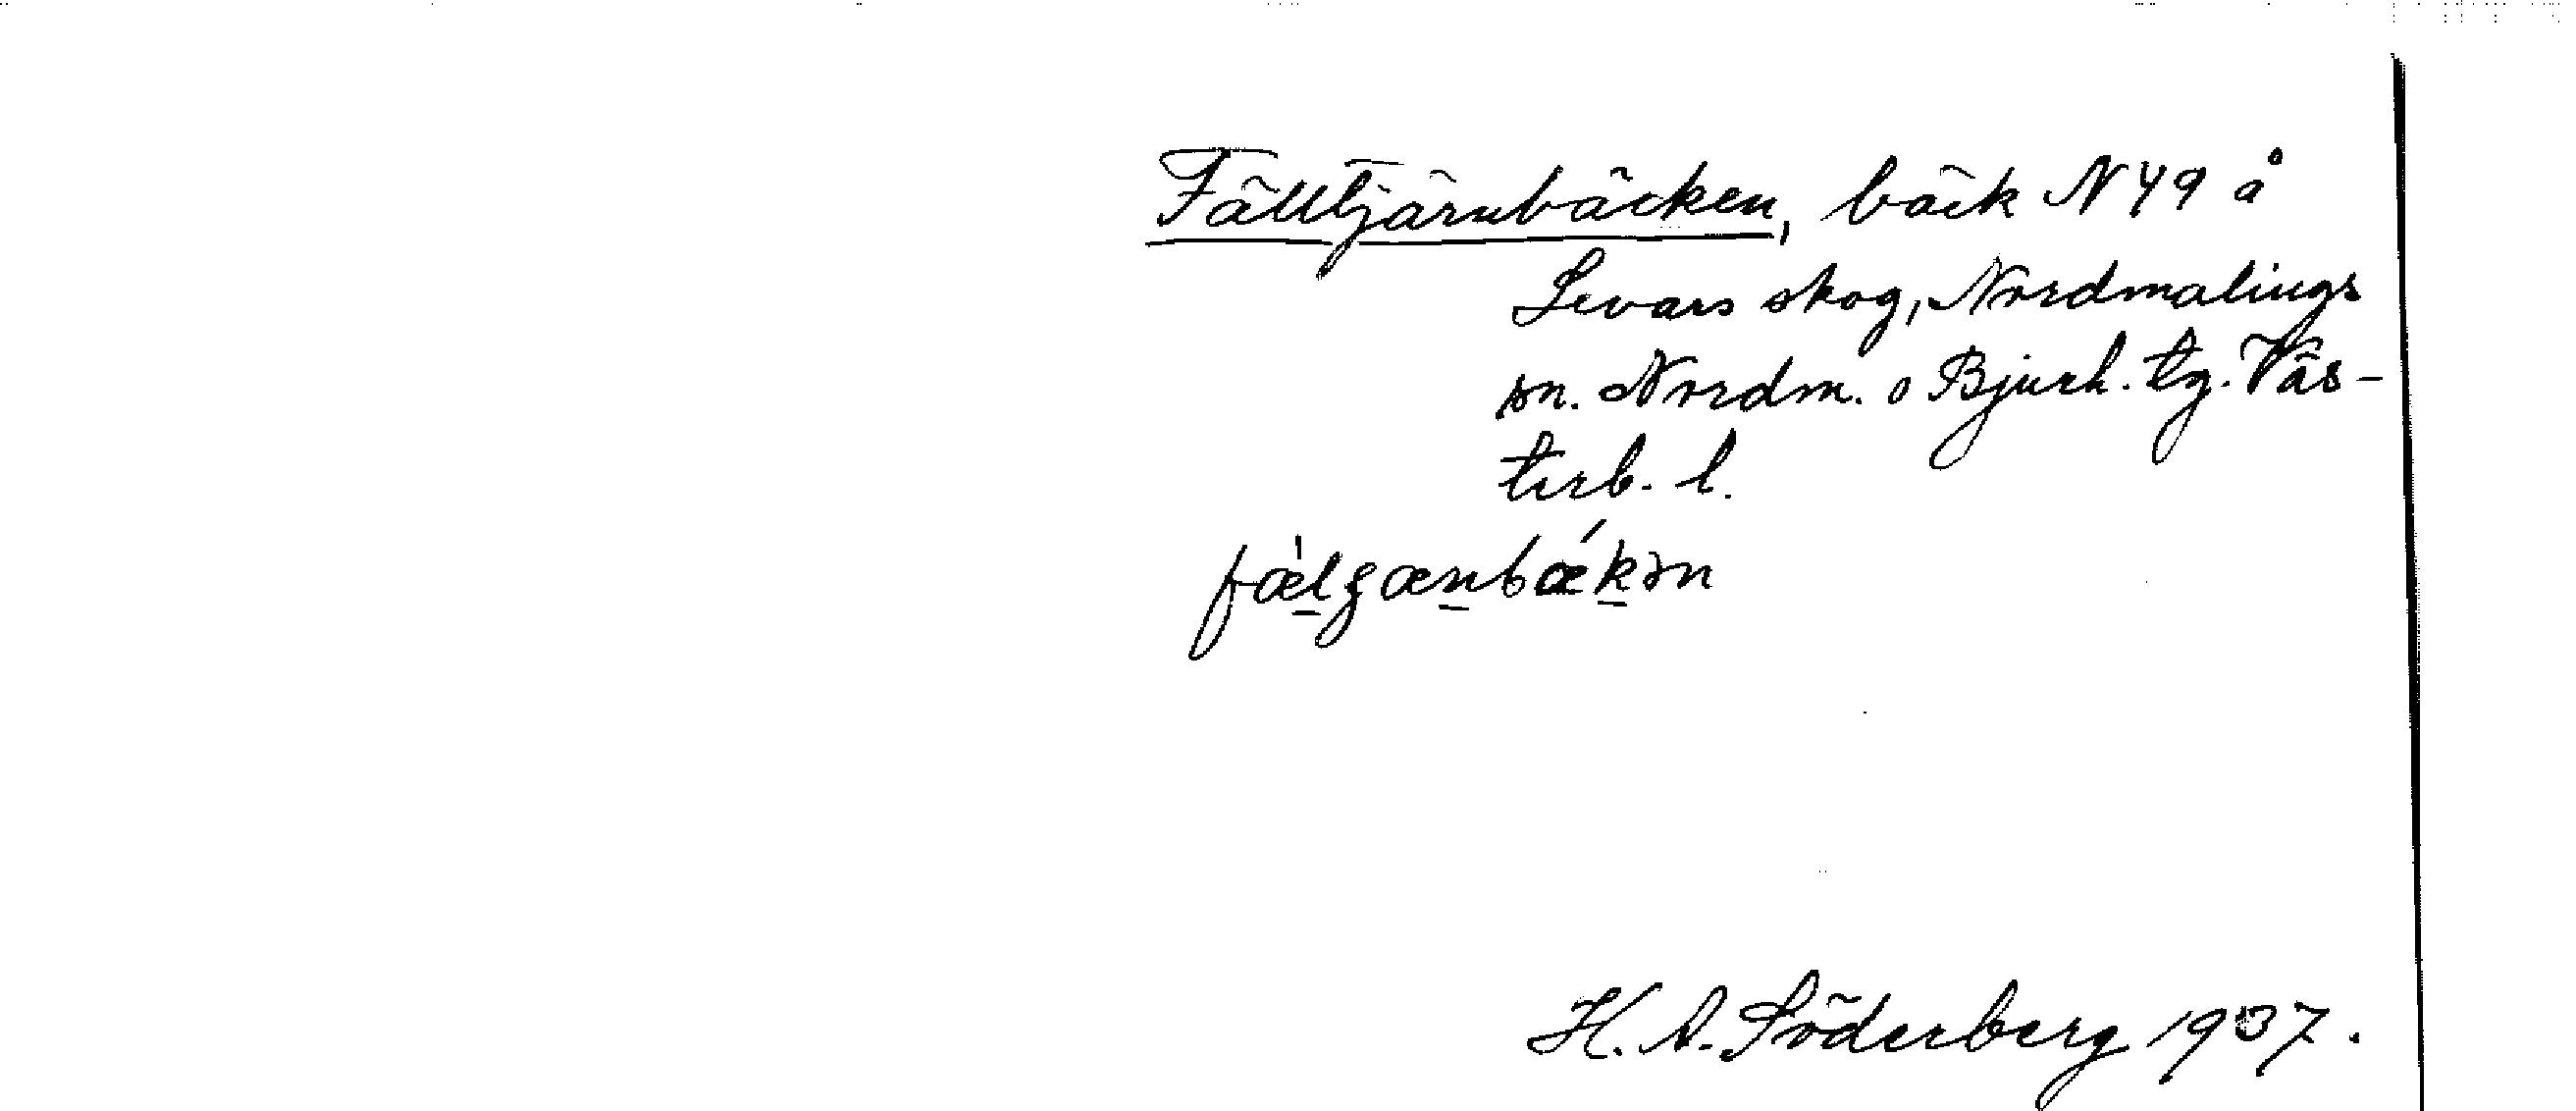 Fälltjärnbäcken, bäck N 49 å
Levars skog, Nordmalings
sn. Nordm. o Bjurh. tg. Väs-
terb. l.
H. A. Söderberg 1937.